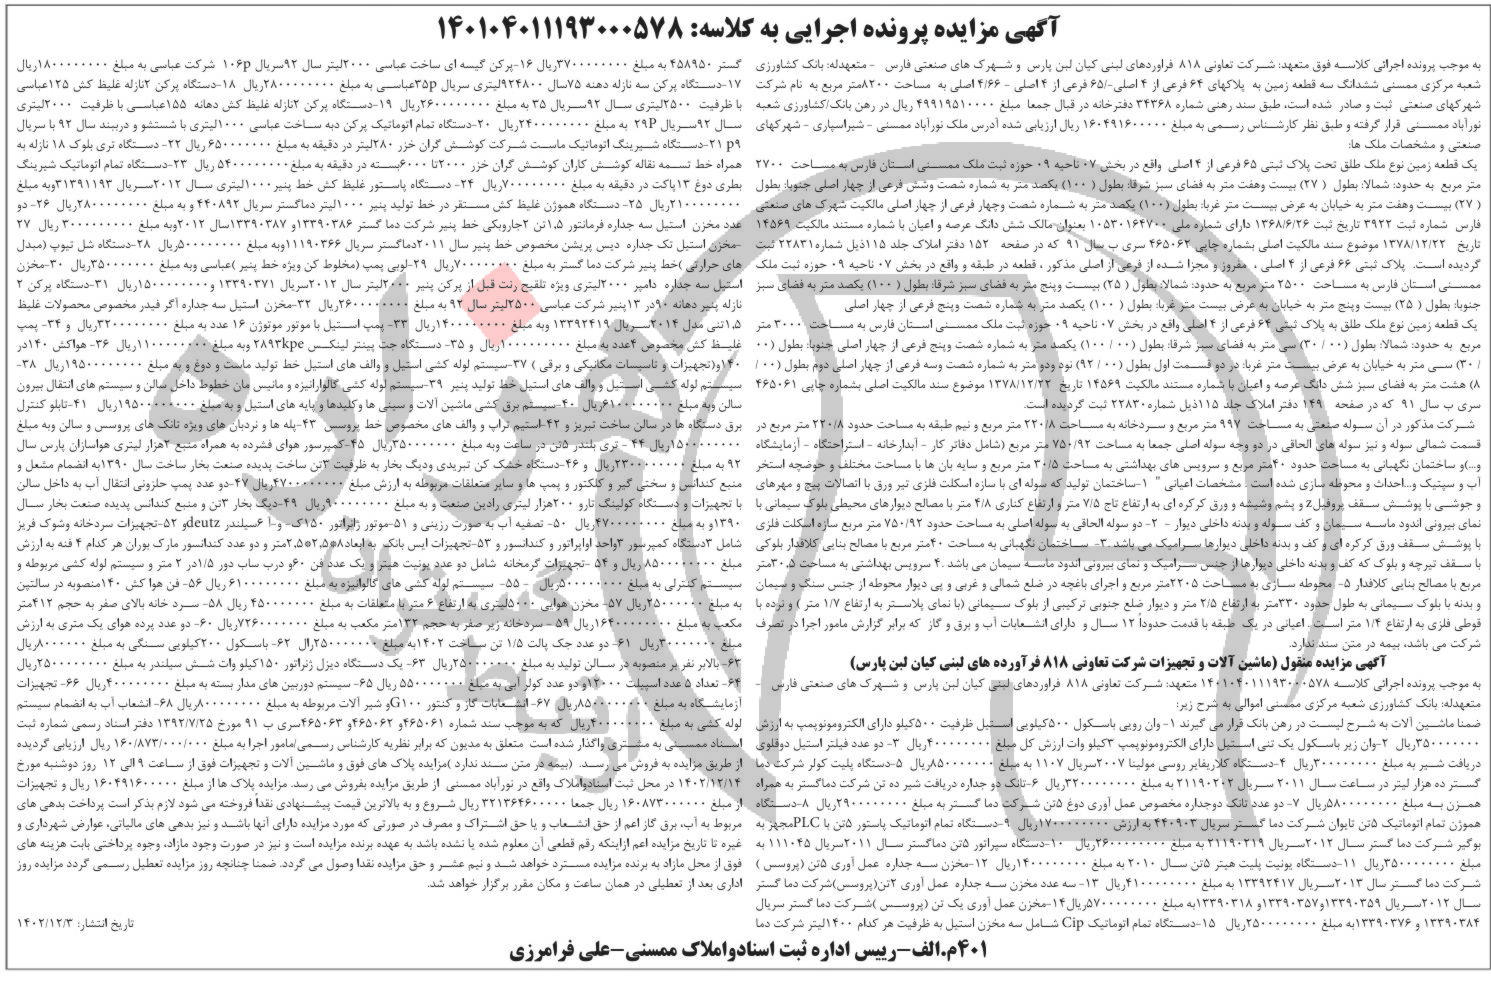 آگهی مزایده پرونده اجرایی به کلاسه: ۱۴۰۱۰۴۰۱۱۱۹۳۰۰۰۵۷۸
به موجب پرونده اجرائی کلاسه فوق متعهد: شرکت تعاونی ۸۱۸ فراوردهای لبنی کیان لبن پارس و شهرک های صنعتی فارس - متعهدله: بانک کشاورزی
شعبه مرکزی ممسنی ششدانگ سه قطعه زمین به پلاکهای ۶۴ فرعی از ۴ اصلی-/۶۵ فرعی از ۴ اصلی - ۴/۶۶ اصلی به مساحت ۸۲۰۰متر مربع به نام شرکت
شهرکهای صنعتی ثبت و صادر شده است، طبق سند رهنی شماره ۳۴۳۶۸ دفترخانه در قبال جمعا مبلغ ۴۹۹۱۹۵۱۰۰۰۰ ریال در رهن بانک/کشاورزی شعبه
نورآباد ممسنی قرار گرفته و طبق نظر کارشناس رسمی به مبلغ ۱۶۰۴۹۱۶۰۰۰۰۰ ریال ارزیابی شده آدرس ملک نورآباد ممسنی - شیراسپاری - شهرکهای
صنعتی و مشخصات ملک ها:
یک قطعه زمین نوع ملک طلق تحت پلاک ثبتی ۶۵ فرعی از ۴ اصلی واقع در بخش ۰۷ ناحیه ۰۹ حوزه ثبت ملک ممسنی استان فارس به مساحت ۲۷۰۰
متر مربع به حدود: شمالا: بطول ( ۲۷) بیست وهفت متر به فضای سبز شرقا: بطول ( ۱۰۰) یکصد متر به شماره شصت وشش فرعی از چهار اصلی جنوبا: بطول
( ۲۷) بیست وهفت متر به خیابان به عرض بیست متر غربا: بطول (۱۰۰) یکصد متر به شماره شصت وچهار فرعی از چهار اصلی مالکیت شهرک های صنعتی
فارس شماره ثبت ۳۹۲۲ تاریخ ثبت ۱۳۶۸/۶/۲۶ دارای شماره ملی ۱۰۵۳۰۱۶۴۷۰۰ بعنوان مالک شش دانگ عرصه و اعیان با شماره مستند مالکیت ۱۴۵۶۹
تاریخ ۱۳۷۸/۱۲/۲۲ موضوع سند مالکیت اصلی بشماره چاپی ۴۶۵۰۶۲ سری ب سال ۹۱ که در صفحه ۱۵۲ دفتر املاک جلد ۱۱۵ذیل شماره۲۲۸۳۱ ثبت
گردیده است. پلاک ثبتی ۶۶ فرعی از ۴ اصلی ، مفروز و مجزا شده از فرعی از اصلی مذکور ، قطعه در طبقه و واقع در بخش ۰۷ ناحیه ۰۹ حوزه ثبت ملک
ممسنی استان فارس به مساحت ۲۵۰۰ متر مربع به حدود: شمالا: بطول ( ۲۵) بیست وپنج متر به فضای سبز شرقا: بطول ( ۱۰۰) یکصد متر به فضای سبز
جنوبا: بطول ( ۲۵) بیست وپنج متر به خیابان به عرض بیست متر غربا: بطول ( ۱۰۰) یکصد متر به شماره شصت وپنج فرعی از چهار اصلی
یک قطعه زمین نوع ملک طلق به پلاک ثبتی ۶۴ فرعی از ۴ اصلی واقع در بخش ۰۷ ناحیه ۰۹ حوزه ثبت ملک ممسنی استان فارس به مساحت ۳۰۰۰ متر
مربع به حدود: شمالا: بطول (۰۰ / ۳۰) سی متر به فضای سبز شرقا: بطول (۰۰ / ۱۰۰) یکصد متر به شماره شصت وپنج فرعی از چهار اصلی جنوبا: بطول (۰۰
/ ۳۰) سی متر به خیابان به عرض بیست متر غربا: در دو قسمت اول بطول (۰۰ / ۹۲) نود ودو متر به شماره شصت وسه فرعی از چهار اصلی دوم بطول (۰۰ /
۸) هشت متر به فضای سبز شش دانگ عرصه و اعیان با شماره مستند مالکیت ۱۴۵۶۹ تاریخ ۱۳۷۸/۱۲/۲۲ موضوع سند مالکیت اصلی بشماره چاپی ۴۶۵۰۶۱
سری ب سال ۹۱ که در صفحه ۱۴۹ دفتر املاک جلد ۱۱۵ذیل شماره۲۲۸۳۰ ثبت گردیده است.
شرکت مذکور در آن سوله صنعتی به مساحت ۹۹۷ متر مربع و سردخانه به مساحت ۲۲۰/۸ متر مربع و نیم طبقه به مساحت حدود ۲۲۰/۸ متر مربع در
قسمت شمالی سوله و نیز سوله های الحاقی در دو وجه سوله اصلی جمعا به مساحت ۷۵۰/۹۲ متر مربع (شامل دفاتر کار - آبدارخانه - استراحتگاه - آزمایشگاه
و...)و ساختمان نگهبانی به مساحت حدود ۴۰متر مربع و سرویس های بهداشتی به مساحت ۳۰/۵ متر مربع و سایه بان ها با مساحت مختلف و حوضچه استخر
آب و سپتیک و...احداث و محوطه سازی شده است . مشخصات اعیانی " ۱-ساختمان تولید که سوله ای با سازه اسکلت فلزی تیر ورق با اتصالات پیچ و مهرهای
و جوشی با پوشش سقف پروفیلz و پشم وشیشه و ورق کرکره ای به ارتفاع تاج ۷/۵ متر و ارتفاع کناری ۴/۸ متر با مصالح دیوارهای محیطی بلوک سیمانی با
نمای بیرونی اندود ماسه سیمان و کف سوله و بدنه داخلی دیوار - ۲- دو سوله الحاقی به سوله اصلی به مساحت حدود ۷۵۰/۹۲ متر مربع سازه اسکلت فلزی
با پوشش سقف ورق کرکره ای و کف و بدنه داخلی دیوارها سرامیک می باشد .۳- ساختمان نگهبانی به مساحت ۴۰متر مربع با مصالح بنایی کلافدار بلوکی
با سقف تیرچه و بلوک که کف و بدنه داخلی دیوارها از جنس سرامیک و نمای بیرونی اندود ماسه سیمان می باشد .۴ سرویس بهداشتی به مساحت ۳۰.۵متر
مربع با مصالح بنایی کلافدار ۵- محوطه سازی به مساحت ۲۲۰۵متر مربع و اجرای باغچه در ضلع شمالی و غربی و پی دیوار محوطه از جنس سنگ و سیمان
و بدنه با بلوک سیمانی به طول حدود ۳۳۰متر به ارتفاع ۲/۵ متر و دیوار ضلع جنوبی ترکیبی از بلوک سیمانی (با نمای پلاستر به ارتفاع ۱/۷ متر ) و نرده با
قوطی فلزی به ارتفاع ۱/۴ متر است . اعیانی در یک طبقه با قدمت حدوداً ۱۲ سال و دارای انشعابات آب و برق و گاز که برابر گزارش مامور اجرا در تصرف
شرکت می باشد، بیمه در متن سند ندارد.
آگهی مزایده منقول (ماشین آلات و تجهیزات شرکت تعاونی ۸۱۸ فرآورده های لبنی کیان لبن پارس)
به موجب پرونده اجرائی کلاسه ۱۴۰۱۰۴۰۱۱۱۹۳۰۰۰۵۷۸ متعهد: شرکت تعاونی ۸۱۸ فراوردهای لبنی کیان لبن پارس و شهرک های صنعتی فارس -
متعهدله: بانک کشاورزی شعبه مرکزی ممسنی اموالی به شرح زیر:
ضمنا ماشین آلات به شرح لیست در رهن بانک قرار می گیرند ۱- وان رویی باسکول ۵۰۰کیلویی استیل ظرفیت ۵۰۰کیلو دارای الکتروموتوپمپ به ارزش
۳۵۰۰۰۰۰۰۰ریال ۲-وان زیر باسکول یک تنی استیل دارای الکتروموتوپمپ ۳کیلو وات ارزش کل مبلغ ۴۰۰۰۰۰۰۰۰ریال ۳- دو عدد فیلتر استیل دوقلوی
دریافت شیر به مبلغ ۳۰۰۰۰۰۰۰۰ریال ۴-دستگاه کلاریفایر روسی مولینا ۲۰۰۷سریال ۱۱۰۷ به مبلغ ۸۵۰۰۰۰۰۰۰۰ریال ۵-دستگاه پلیت کولر شرکت دما
گستر ده هزار لیتر در ساعت سال ۲۰۱۱ سریال ۲۱۱۹۰۲۰۷ به مبلغ ۳۲۰۰۰۰۰۰۰۰ریال ۶-تانک دو جداره دریافت شیر ده تن شرکت دماگستر به همراه
همزن به مبلغ ۵۸۰۰۰۰۰۰۰۰ریال ۷- دو عدد تانک دوجداره مخصوص عمل آوری دوغ ۵تن شرکت دما گستر به مبلغ ۲۹۰۰۰۰۰۰۰۰ریال ۸-دستگاه
هموژن تمام اتوماتیک ۵تن تایوان شرکت دما گستر سریال ۴۴۰۹۰۳ به ارزش ۱۷۰۰۰۰۰۰۰۰۰ریال ۹-دستگاه تمام اتوماتیک پاستور ۵تن با PLCمجهز به
بوگیر شرکت دما گستر سال ۲۰۱۲سریال ۲۱۱۹۰۲۱۹ به مبلغ ۲۶۰۰۰۰۰۰۰۰۰ریال ۱۰-دستگاه سپراتور ۵تن دماگستر سال ۲۰۱۱سریال ۱۱۱۰۴۵ به
مبلغ ۳۵۰۰۰۰۰۰۰۰ریال ۱۱-دستگاه یونیت پلیت هیتر ۵تن سال ۲۰۱۰ به مبلغ ۱۴۰۰۰۰۰۰۰۰ریال ۱۲-مخزن سه جداره عمل آوری ۵تن (پروسس )
شرکت دما گستر سال ۲۰۱۳سریال ۱۳۳۹۲۴۱۷ به مبلغ ۴۱۰۰۰۰۰۰۰۰ریال ۱۳- سه عدد مخزن سه جداره عمل آوری ۲تن(پروسس)شرکت دما گستر
سال ۲۰۱۲سریال ۱۳۳۹۰۳۵۹و۱۳۳۹۰۳۵۷و ۱۳۳۹۰۳۱۸به مبلغ ۵۷۰۰۰۰۰۰۰۰ریال۱۴-مخزن عمل آوری یک تن (پروسس )شرکت دما گستر سریال
۱۳۳۹۰۳۸۴ و ۱۳۳۹۰۳۷۶به مبلغ ۲۵۰۰۰۰۰۰۰۰ریال ۱۵-دستگاه تمام اتوماتیک Cip شامل سه مخزن استیل به ظرفیت هر کدام ۱۴۰۰لیتر شرکت دما
گستر ۴۵۸۹۵۰ به مبلغ ۳۷۰۰۰۰۰۰۰۰ریال ۱۶-پرکن گیسه ای ساخت عباسی ۲۰۰۰لیتر سال ۹۲سریال ۱۰۶p شرکت عباسی به مبلغ ۱۸۰۰۰۰۰۰۰۰ریال
۱۷-دستگاه پرکن سه نازله دهنه ۷۵سال ۹۲۴۸۰۰لیتری سریال ۳۵pعباسی به مبلغ ۲۸۰۰۰۰۰۰۰۰ریال ۱۸-دستگاه پرکن ۲نازله غلیظ کش ۱۲۵عباسی
با ظرفیت ۲۵۰۰لیتری سال ۹۲سریال ۳۵ به مبلغ ۲۶۰۰۰۰۰۰۰۰ریال ۱۹-دستگاه پرکن ۲نازله غلیظ کش دهانه ۱۵۵عباسی با ظرفیت ۲۰۰۰لیتری
سال ۹۲سریال ۲۹P به مبلغ ۲۴۰۰۰۰۰۰۰۰ریال ۲۰-دستگاه تمام اتوماتیک پرکن دبه ساخت عباسی ۱۰۰۰لیتری با شستشو و درببند سال ۹۲ با سریال
۹p ۲۱-دستگاه شیرینگ اتوماتیک ماست شرکت کوشش گران خزر ۲۸۰لیتر در دقیقه به مبلغ ۶۵۰۰۰۰۰۰۰۰ریال ۲۲- دستگاه تری بلوک ۱۸ نازله به
همراه خط تسمه نقاله کوشش کاران کوشش گران خزر ۲۰۰۰تا ۶۰۰۰بسته در دقیقه به مبلغ۵۴۰۰۰۰۰۰۰۰۰ریال ۲۳-دستگاه تمام اتوماتیک شیرینگ
بطری دوغ ۱۳پاکت در دقیقه به مبلغ ۷۰۰۰۰۰۰۰۰۰ریال ۲۴- دستگاه پاستور غلیظ کش خط پنیر ۱۰۰۰لیتری سال ۲۰۱۲سریال ۳۱۳۹۱۱۹۳وبه مبلغ
۲۱۰۰۰۰۰۰۰۰ریال ۲۵- دستگاه هموژن غلیظ کش مستقر در خط تولید پنیر ۱۰۰۰لیتر دماگستر سریال ۴۴۰۸۹۲ و به مبلغ ۲۸۰۰۰۰۰۰۰۰ریال ۲۶- دو
عدد مخزن استیل سه جداره فرمانتور ۱،۵تن ۲جاروبکی خط پنیر شرکت دما گستر ۱۳۳۹۰۳۸۶و ۱۳۳۹۰۳۸۷سال ۲۰۱۲وبه مبلغ ۳۰۰۰۰۰۰۰۰۰ ریال ۲۷
-مخزن استیل تک جداره دیس پریشن مخصوص خط پنیر سال ۲۰۱۱دماگستر سریال ۱۱۱۹۰۳۶۶وبه مبلغ ۵۰۰۰۰۰۰۰۰ریال ۲۸-دستگاه شل تیوپ (مبدل
های حرارتی )خط پنیر شرکت دما گستر به مبلغ ۷۰۰۰۰۰۰۰۰ریال ۲۹-لوبی پمپ (مخلوط کن ویژه خط پنیر )عباسی وبه مبلغ ۳۵۰۰۰۰۰۰۰ریال ۳۰-مخزن
استیل سه جداره دامپر ۲۰۰۰لیتری ویژه تلقیح رنت قبل از پرکن پنیر ۲۰۰۰لیتر سال ۲۰۱۲سریال ۱۳۳۹۰۳۷۱ و۱۵۰۰۰۰۰۰۰۰ریال ۳۱-دستگاه پرکن ۲
نازله پنیر دهانه ۹۰در ۱۳پنیر شرکت عباسی ۲۵۰۰لیتر سال ۹۲ به مبلغ ۲۶۰۰۰۰۰۰۰۰ریال ۳۲-مخزن استیل سه جداره اگر فیدر مخصوص محصولات غلیظ
۱،۵تنی مدل ۲۰۱۴سریال ۱۳۳۹۲۴۱۹ وبه مبلغ ۱۴۰۰۰۰۰۰۰۰ریال ۳۳- پمپ استیل با موتور موتوژن ۱۶ عدد به مبلغ ۳۲۰۰۰۰۰۰۰۰ریال و ۳۴- پمپ
غلیظ کش مخصوص ۴عدد به مبلغ ریال و ۳۵- دستگاه جت پینتر لینکس ۲۸۹۳kpe وبه مبلغ ۱۱۰۰۰۰۰۰۰۰ریال ۳۶- هواکش ۱۴۰در
۱۴۰و(تجهیزات و تاسیسات مکانیکی و برقی ) ۳۷-سیستم لوله کشی استیل و والف های استیل خط تولید ماست و دوغ و به مبلغ ۱۹۵۰۰۰۰۰۰۰۰ریال ۳۸-
سیستم لوله کشی استیل و والف های استیل خط تولید پنیر ۳۹-سیستم لوله کشی گالوانیزه و مانیس مان خطوط داخل سالن و سیستم های انتقال بیرون
سالن وبه مبلغ ۶۱۰۰۰۰۰۰۰۰ریال ۴۰-سیستم برق کشی ماشین آلات و سینی ها وکلیدها و پایه های استیل و به مبلغ ۱۹۵۰۰۰۰۰۰۰ریال ۴۱-تابلو کنترل
برق دستگاه ها در سالن ساخت تبریز و ۴۲-استیم تراپ و والف های مخصوص خط پروسس ۴۳-پله ها و نردبان های ویژه تانک های پروسس و سالن وبه مبلغ
۱۵۰۰۰۰۰۰۰۰ریال ۴۴ - تری بلندر ۵تن در ساعت وبه مبلغ ۳۵۰۰۰۰۰۰۰ریال ۴۵-کمپرسور هوای فشرده به همراه منبع ۲هزار لیتری هواسازان پارس سال
۹۲ به مبلغ ۲۳۰۰۰۰۰۰۰۰ریال و ۴۶-دستگاه خشک کن تبریدی ودیگ بخار به ظرفیت ۳تن ساخت پدیده صنعت بخار ساخت سال ۱۳۹۰به انضمام مشعل و
منبع کندانس و سختی گیر و کلکتور و پمپ ها و سایر متعلقات مربوطه به ارزش مبلغ ۴۷۰۰۰۰۰۰۰۰ریال ۴۷-دو عدد پمپ حلزونی انتقال آب به داخل سالن
با تجهیزات و دستگاه کولینگ تاور ۲۰۰هزار لیتری رادین صنعت و به مبلغ ۹۰۰۰۰۰۰۰۰ریال ۴۹-دیگ بخار ۳تن و منبع کندانس پدیده صنعت بخار سال
۱۳۹۰و به مبلغ ۴۷۰۰۰۰۰۰۰۰ریال ۵۰- تصفیه آب به صورت رزینی و ۵۱-موتور ژانراتور ۱۵۰ک.و-آ ۶سیلندر deutzو ۵۲-تجهیزات سردخانه وشوک فریز
شامل ۳دستگاه کمپرسور ۳واحد اواپراتور و کندانسور و ۵۳-تجهیزات ایس بانک به ابعاد۸*۲،۵*۲،۵متر و دو عدد کندانسور مارک بوران هر کدام ۴ فنه به ارزش
مبلغ ۸۵۰۰۰۰۰۰۰۰ ریال و ۵۴ -تجهیزات گرمخانه شامل دو عدد یونیت هیتر و یک عدد فن ۶۰و درب ساب دور ۱/۵در ۲ متر و سیستم لوله کشی مربوطه و
سیستم کنترلی به مبلغ ۵۰۰۰۰۰۰۰۰ریال - ۵۵- سیستم لوله کشی های گالوانیزه به مبلغ ۶۱۰۰۰۰۰۰۰۰ ریال ۵۶- فن هوا کش ۱۴۰منصوبه در سالنتین
به مبلغ ۲۵۰۰۰۰۰۰۰ریال ۵۷- مخزن هوایی ۵۰۰۰لیتری به ارتفاع ۶ متر با متعلقات به مبلغ ۴۵۰۰۰۰۰۰۰ ریال ۵۸- سرد خانه بالای صفر به حجم ۴۱۲متر
مکعب به مبلغ ۱۶۴۰۰۰۰۰۰۰۰ریال ۵۹ - سردخانه زیر صفر به حجم ۱۳۲متر مکعب به مبلغ ۷۲۶۰۰۰۰۰۰۰ریال ۶۰- دو عدد پرده هوای یک متری به ارزش
مبلغ ۳۰۰۰۰۰۰۰۰ریال ۶۱- دو عدد جک پالت ۱/۵ تن ساخت ۱۴۰۲به مبلغ ۲۵۰۰۰۰۰۰۰ریال ۶۲- باسکول ۲۰۰کیلویی سنگی به مبلغ ۸۰۰۰۰۰۰۰ریال
۶۳-بالابر نفر بر منصوبه در سالن تولید به مبلغ ۲۵۰۰۰۰۰۰۰ریال ۶۳- یک دستگاه دیزل ژنراتور ۱۵۰کیلو وات شش سیلندر به مبلغ ۲۵۰۰۰۰۰۰۰۰ریال
۶۴- تعداد ۵عدد اسپیلت ۱۲۰۰۰و دو عدد کولر آبی به مبلغ ۵۵۰۰۰۰۰۰۰ ریال ۶۵- سیستم دوربین های مدار بسته به مبلغ ۴۰۰۰۰۰۰۰۰ریال ۶۶- تجهیزات
آزمایشگاه به مبلغ ۸۵۰۰۰۰۰۰۰ریال ۶۷- انشعابات گاز و کنتور G۱۰۰و شیر آلات مربوطه به مبلغ ۸۰۰۰۰۰۰۰۰ریال ۶۸- انشعاب آب به انضمام سیستم
لوله کشی به مبلغ ۴۰۰۰۰۰۰۰۰ریال که به موجب سند شماره ۴۶۵۰۶۱و ۴۶۵۰۶۲و ۴۶۵۰۶۳سری ب ۹۱ مورخ ۱۳۹۲/۷/۲۵ دفتر اسناد رسمی شماره ثبت
اسناد ممسنی به مشتری واگذار شده است متعلق به مدیون که برابر نظریه کارشناس رسمی/مامور اجرا به مبلغ ۱۶۰/۸۷۳/۰۰۰/۰۰۰ ریال ارزیابی گردیده
از طریق مزایده به فروش می رسد. (بیمه در متن سند ندارد )مزایده پلاک های فوق و ماشین آلات و تجهیزات فوق از ساعت ۹ الی ۱۲ روز دوشنبه مورخ
۱۴۰۲/۱۲/۱۴ در محل ثبت اسنادواملاک واقع در نورآباد ممسنی از طریق مزایده بفروش می رسد. مزایده پلاک ها از مبلغ ۱۶۰۴۹۱۶۰۰۰۰۰ ریال و تجهیزات
از مبلغ ۱۶۰۸۷۳۰۰۰۰۰۰ ریال جمعا ۳۲۱۳۶۴۶۰۰۰۰۰ ریال شروع و به بالاترین قیمت پیشنهادی نقداً فروخته می شود لازم بذکر است پرداخت بدهی های
مربوط به آب، برق گاز اعم از حق انشعاب و یا حق اشتراک و مصرف در صورتی که مورد مزایده دارای آنها باشد و نیز بدهی های مالیاتی، عوارض شهرداری و
غیره تا تاریخ مزایده اعم ازاینکه رقم قطعی آن معلوم شده یا نشده باشد به عهده برنده مزایده است و نیز در صورت وجود مازاد، وجوه پرداختی بابت هزینه های
فوق از محل مازاد به برنده مزایده مسترد خواهد شد و نیم عشر و حق مزایده نقدا وصول می گردد. ضمنا چنانچه روز مزایده تعطیل رسمی گردد مزایده روز
اداری بعد از تعطیلی در همان ساعت و مکان مقرر برگزار خواهد شد.
تاریخ انتشار: ۱۴۰۲/۱۲/۳
۴۰۱م.الف-رییس اداره ثبت اسنادواملاک ممسنی-علی فرامرزی